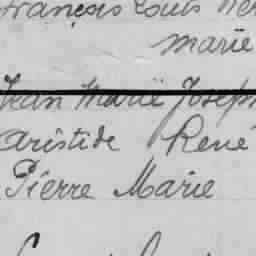 François Louis
Marie
Jean Marie Joseph
Aristide René
Pierre Marie